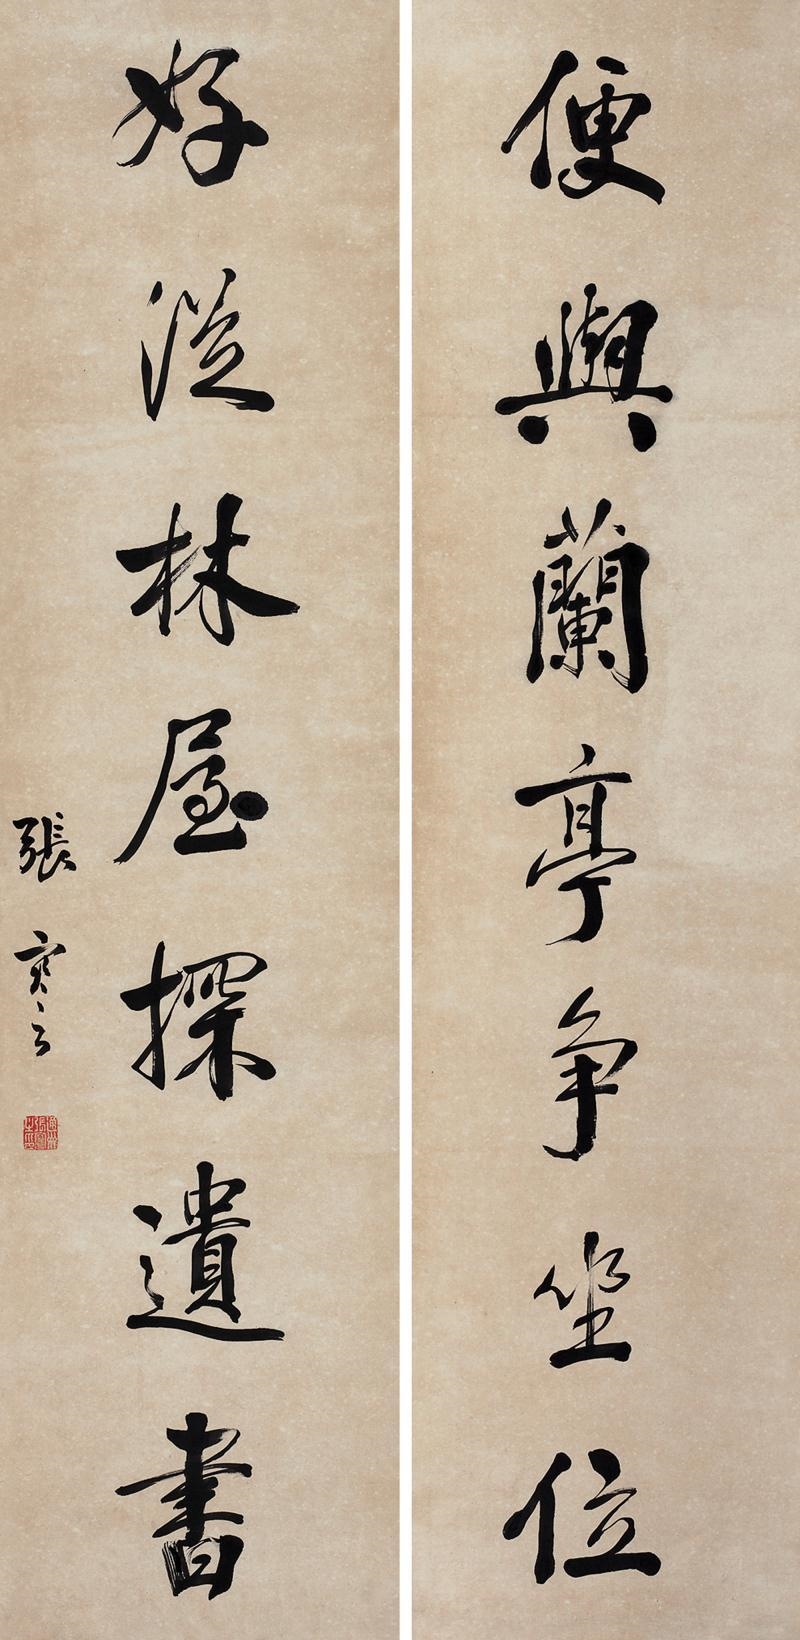 便與蘭亭争坐位
好從林屋探遺書
張謇